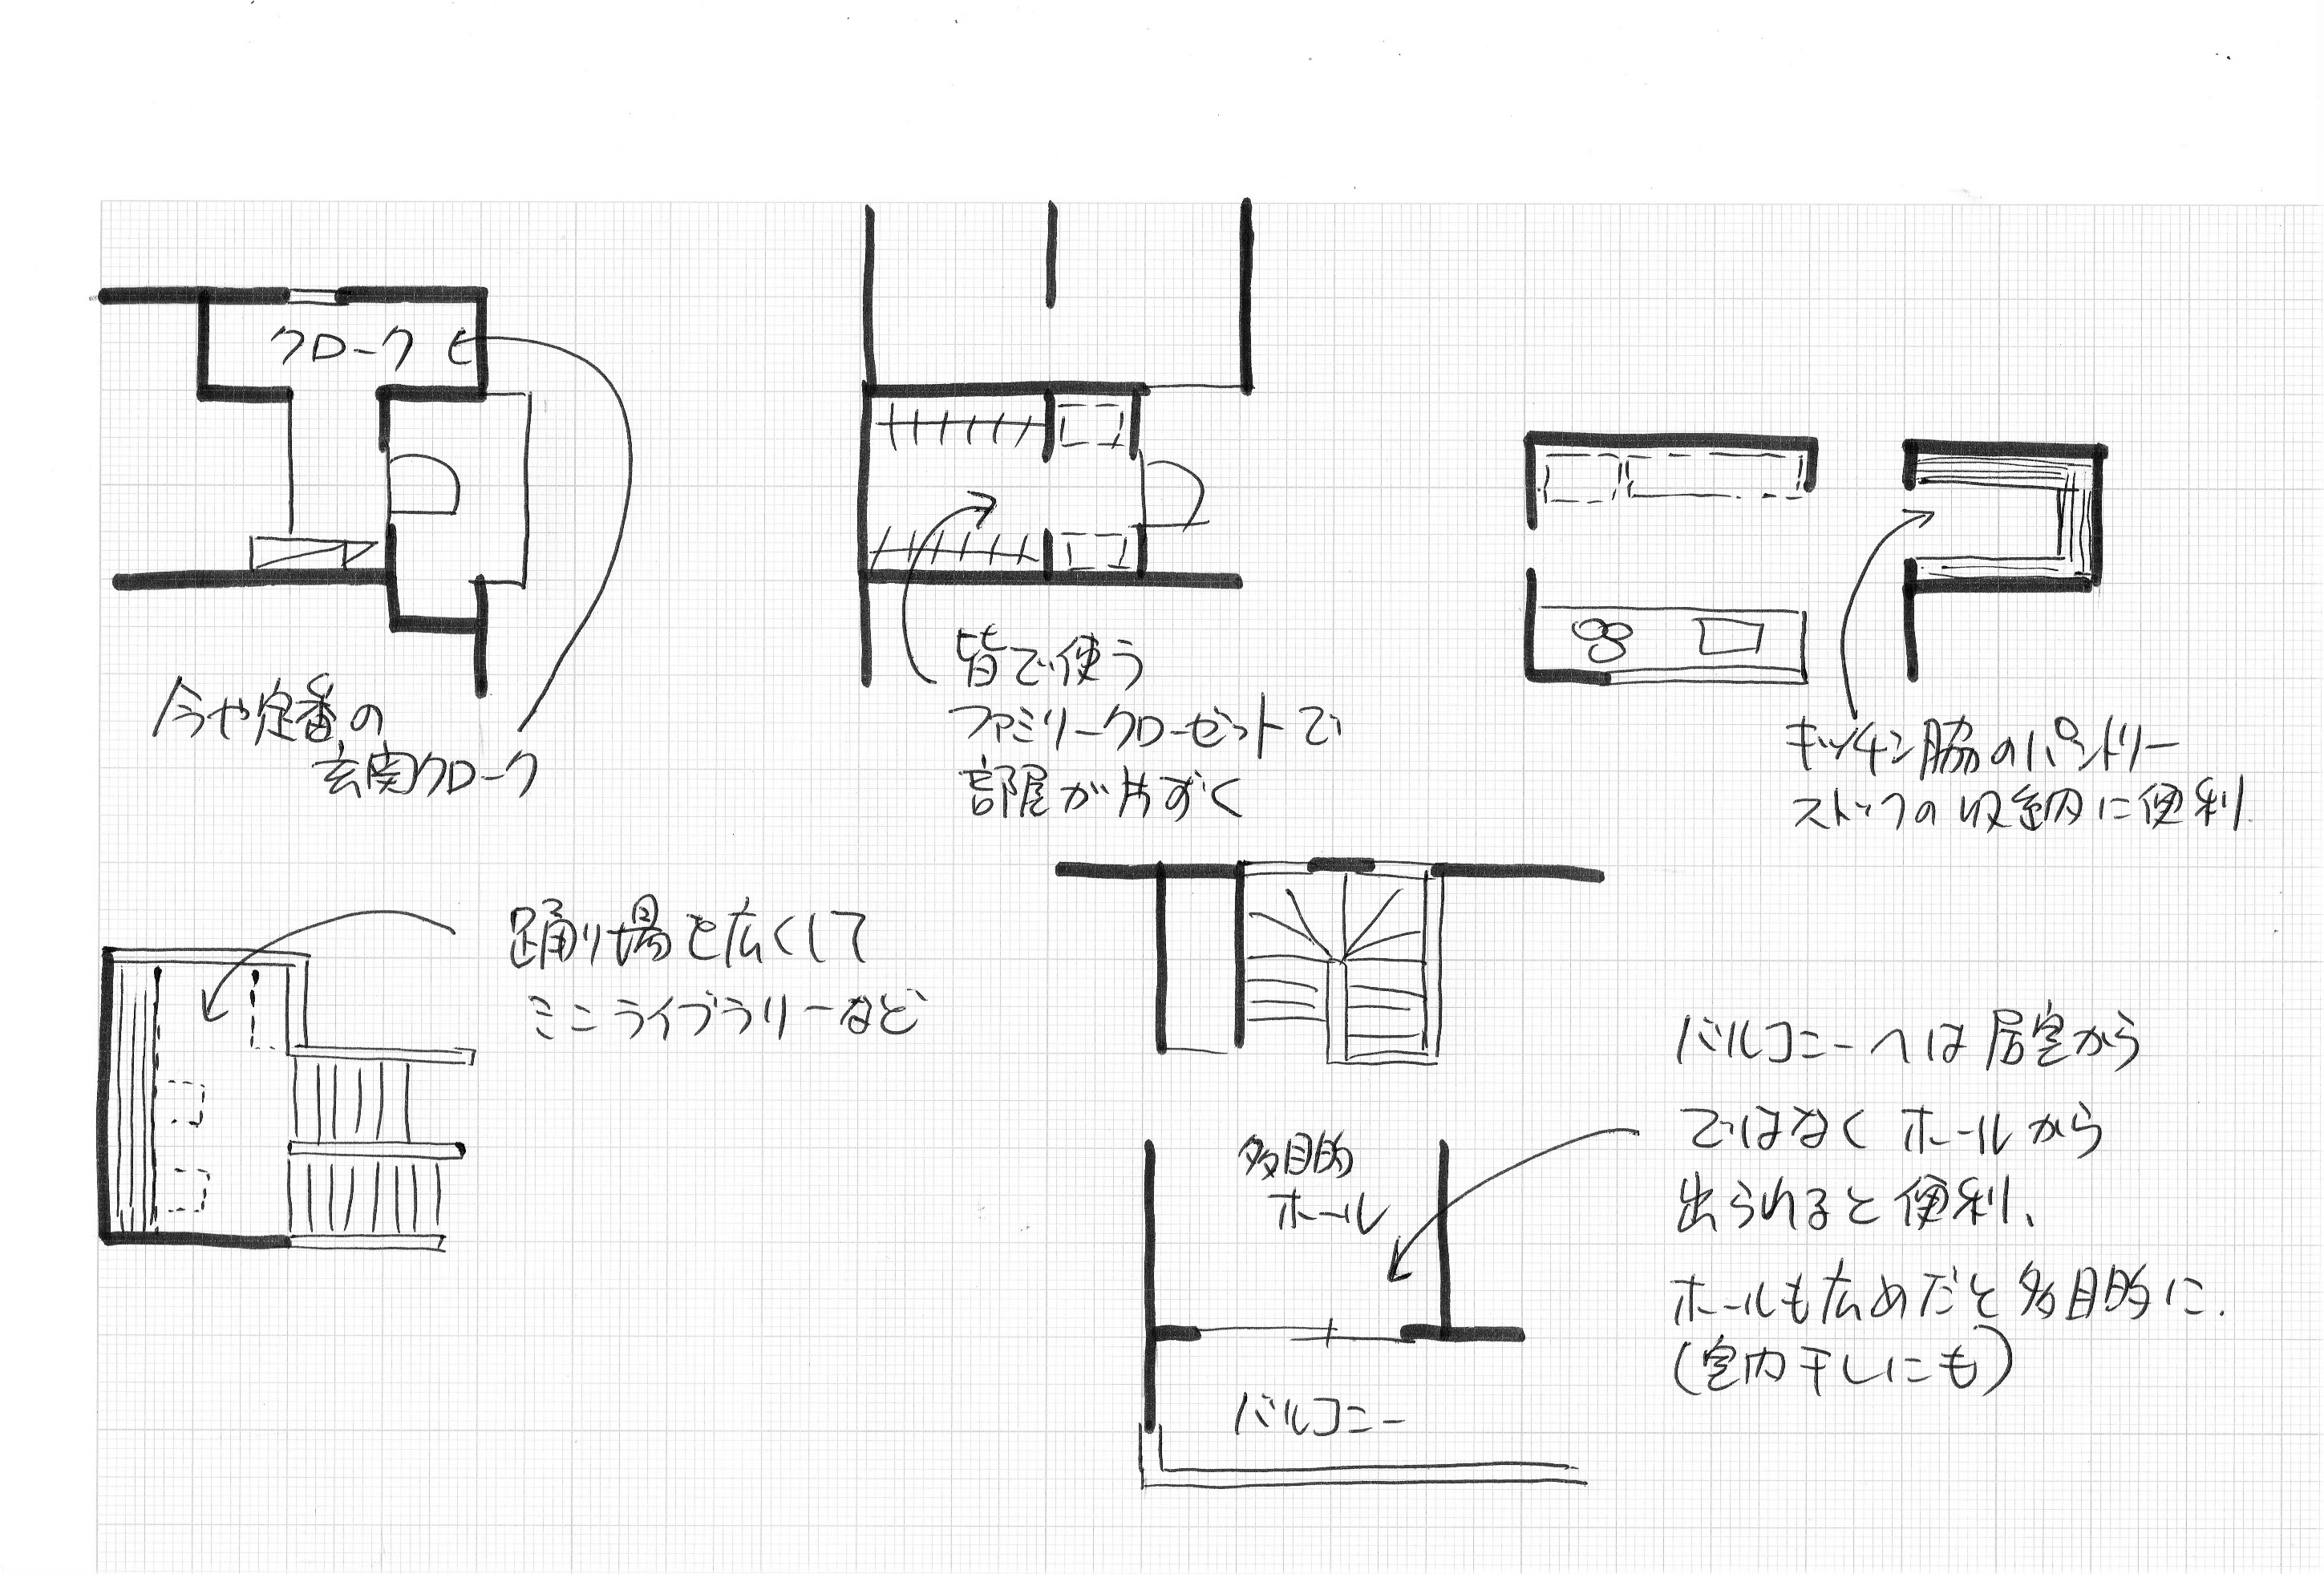 クローク
今や定番の
玄関クローク
皆で使う
ファミリークローゼットで
部屋が片ずく
キッチン脇のパントリー
ストックの収納に便利
踊り場を広くして
ミニライブラリーなど
多目的
ホール
バルコニー
バルコニーへは居室から
ではなくホールから
出られると便利、
ホールも広めだと多目的に.
(室内干しにも)